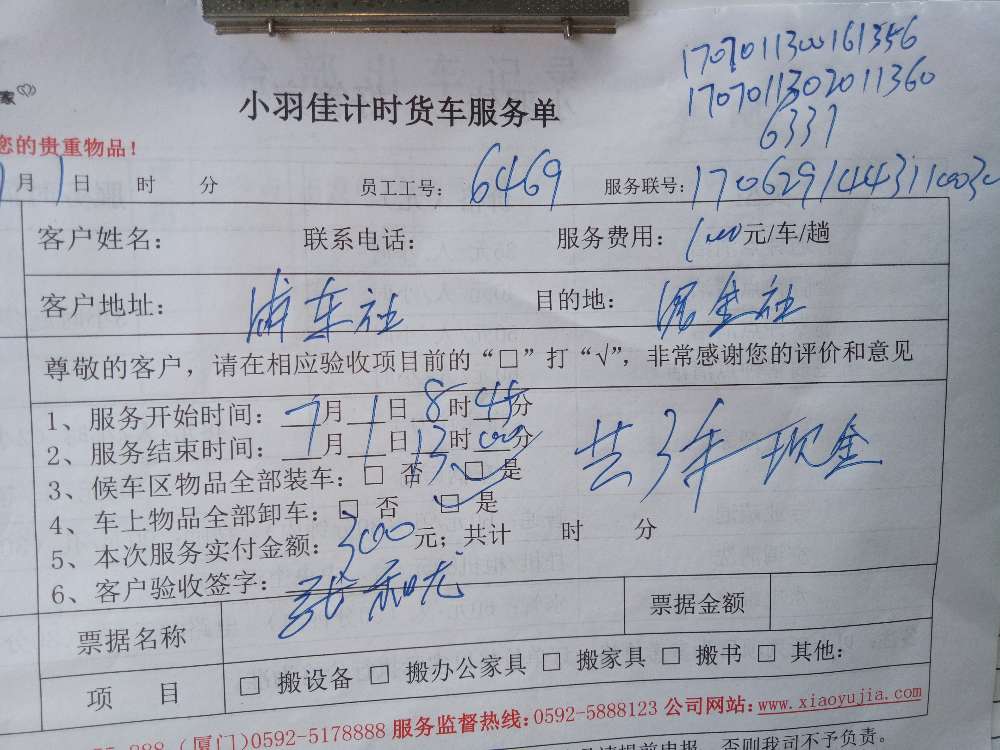 1707011300161356
1707011302011360
6337
家
小羽佳计时货车服务单
您的贵重物品！
7月1日 时 分 员工工号：6469 服务联号：
客户姓名： 联系电话： 服务费用：100元/车/趟
客户地址：浦东社 目的地：
尊敬的客户，请在相应验收项目前的“□”打“√”，非常感谢您的评价和意见
1、服务开始时间：7月1日8时45分
2、服务结束时间：7月1日13时00分
共3车 现金
3、候车区物品全部装车：□ 否 □ 是
4、车上物品全部卸车：□ 否 □ 是
5、本次服务实付金额：300元；共计 时 分
6、客户验收签字：
票据名称 票据金额
项 目 □ 搬设备 □ 搬办公家具 □ 搬家具 □ 搬书 □ 其他：
888（厦门)0592-5178888 服务监督热线：0592-5888123 公司网站：www.xiaoyujia.com
请提前申报，否则我司不予负责。